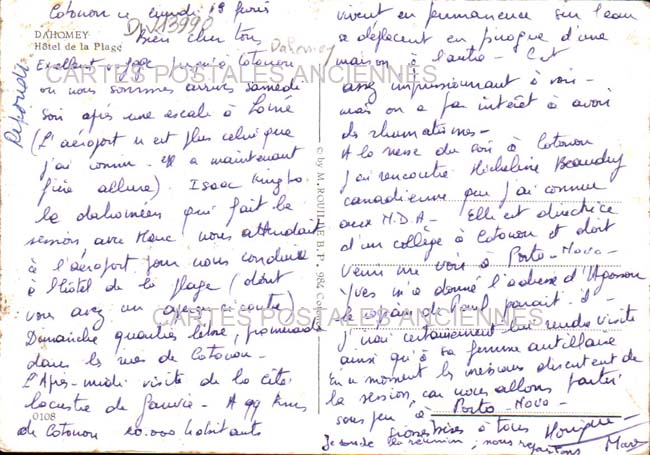 Cotonou ce lundi 19 fevri
DW13990
DAHOMEY
Hôtel de la Plage
Bien cher ton
Dahomey
Repondu
Excellent voyage jusqu'à Cotonou
où nous sommes arrivés samedi
soir après une escale à Lomé
(L'aéroport n'est plus celui que
j'ai connu - il a maintenant
fière allure). Isaac
le dahoméen qui fait la
session avec Marc nous attendait
à l'aéroport pour nous conduire
à l'hôtel de la plage (dont
vous avez un aperçu ci-contre)
Dimanche quartier libre, promenade
dans les rues de Cotonou -
L'Après-midi visite de la cité
lacustre de Ganvié - A 99 kms
de Cotonou 20.000 habitants
0108
© by M. ROUILLE B.P. 984 Cotonou
vivent en permanence sur l'eau
se déplacent en pirogue d'une
maison à l'autre - C'est
assez impressionnant à voir -
mais on a pas intérêt à avoir
des rhumatismes -
A la messe du soir à Cotonou
j'ai rencontré Micheline Beaudry
canadienne que j'ai connue
aux M.D.A - Elle est directrice
d'un collège à Cotonou et doit
venir me voir à Porto-Novo -
Yves m'a donné l'adresse d'
le copain de Paul parait-il -
j'irai certainement lui rendre visite
ainsi qu'à sa femme antillaise
En ce moment les messieurs discutent de
la session, car nous allons partir
sous peu à Porto-Novo -
Grosses bises à tous Monique
Je sors de la réunion, nous repartons Marc
CARTES POSTALES ANCIENNES
CARTES POSTALES ANCIENNES